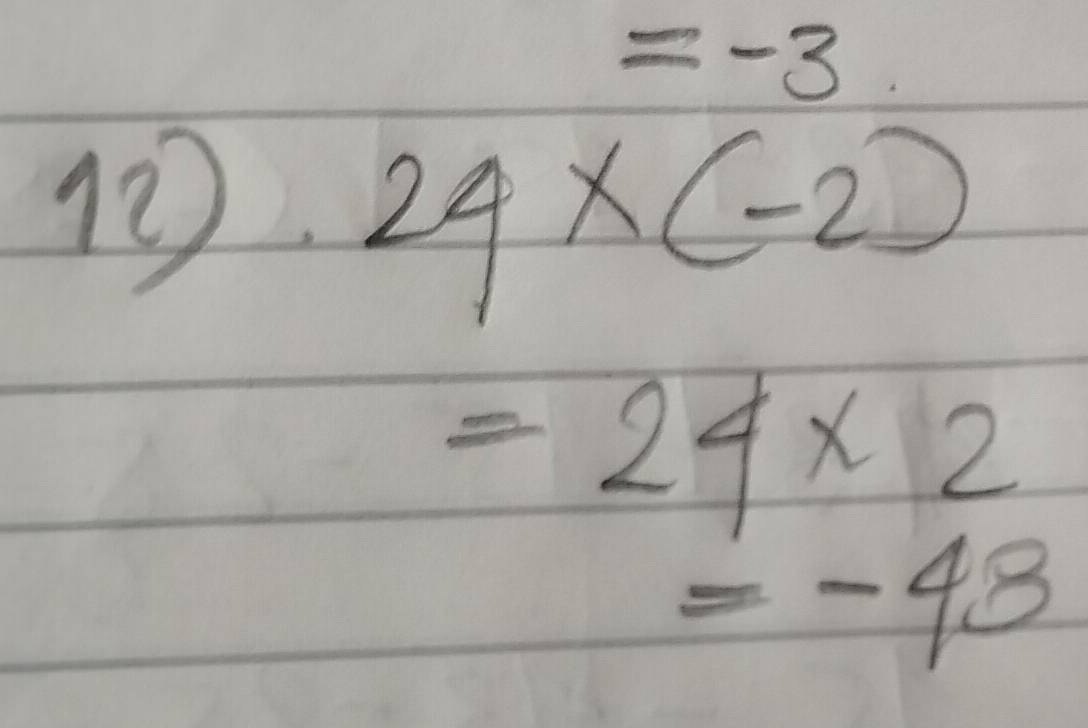 = -3.
12). 24 × (-2)
= 24 × 2
= -48